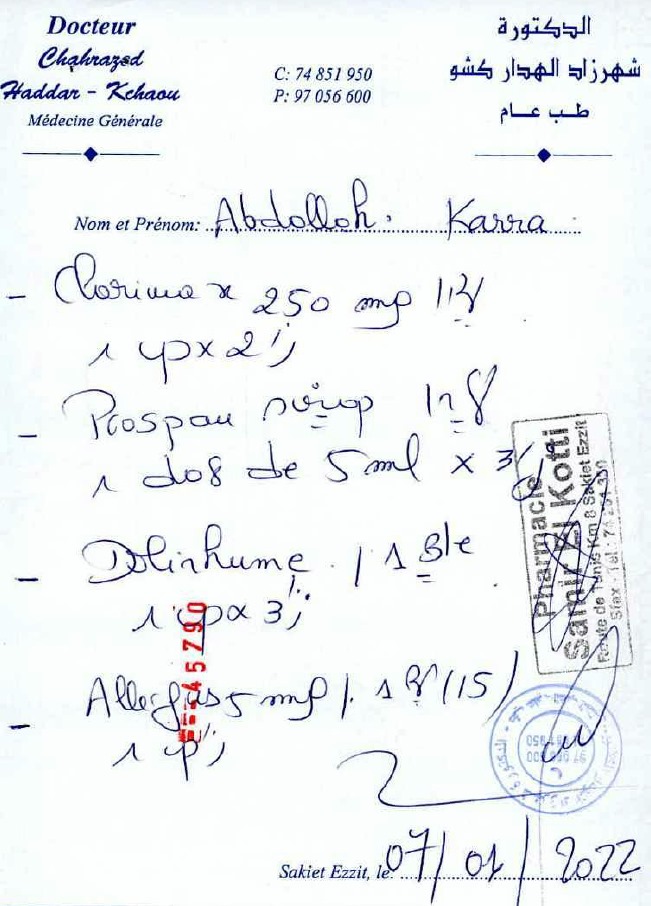 Docteur
Chahrazed
Haddar - Kchaou
Médecine Générale
C: 74 851 950
P: 97 056 600
الدكتورة
شهرزاد الهدار كشو
طب عام
Nom et Prénom: Abdolloh. Karra
- Clarimax 250 mg
1 cp x 2/j
- Prospan sirop 1
1 dos de 5 ml x 3/j
- Dolirhume / 1 Bte
1 cp x 3/j
- Allergus 5 mg / 1 (15)
1 cp/j
Pharmacie
Samir El Kotti
Route de Tunis Km 8 Sakiet Ezzit
Sfax - Tél : 74
45790
Sakiet Ezzit, le 07/01/2022